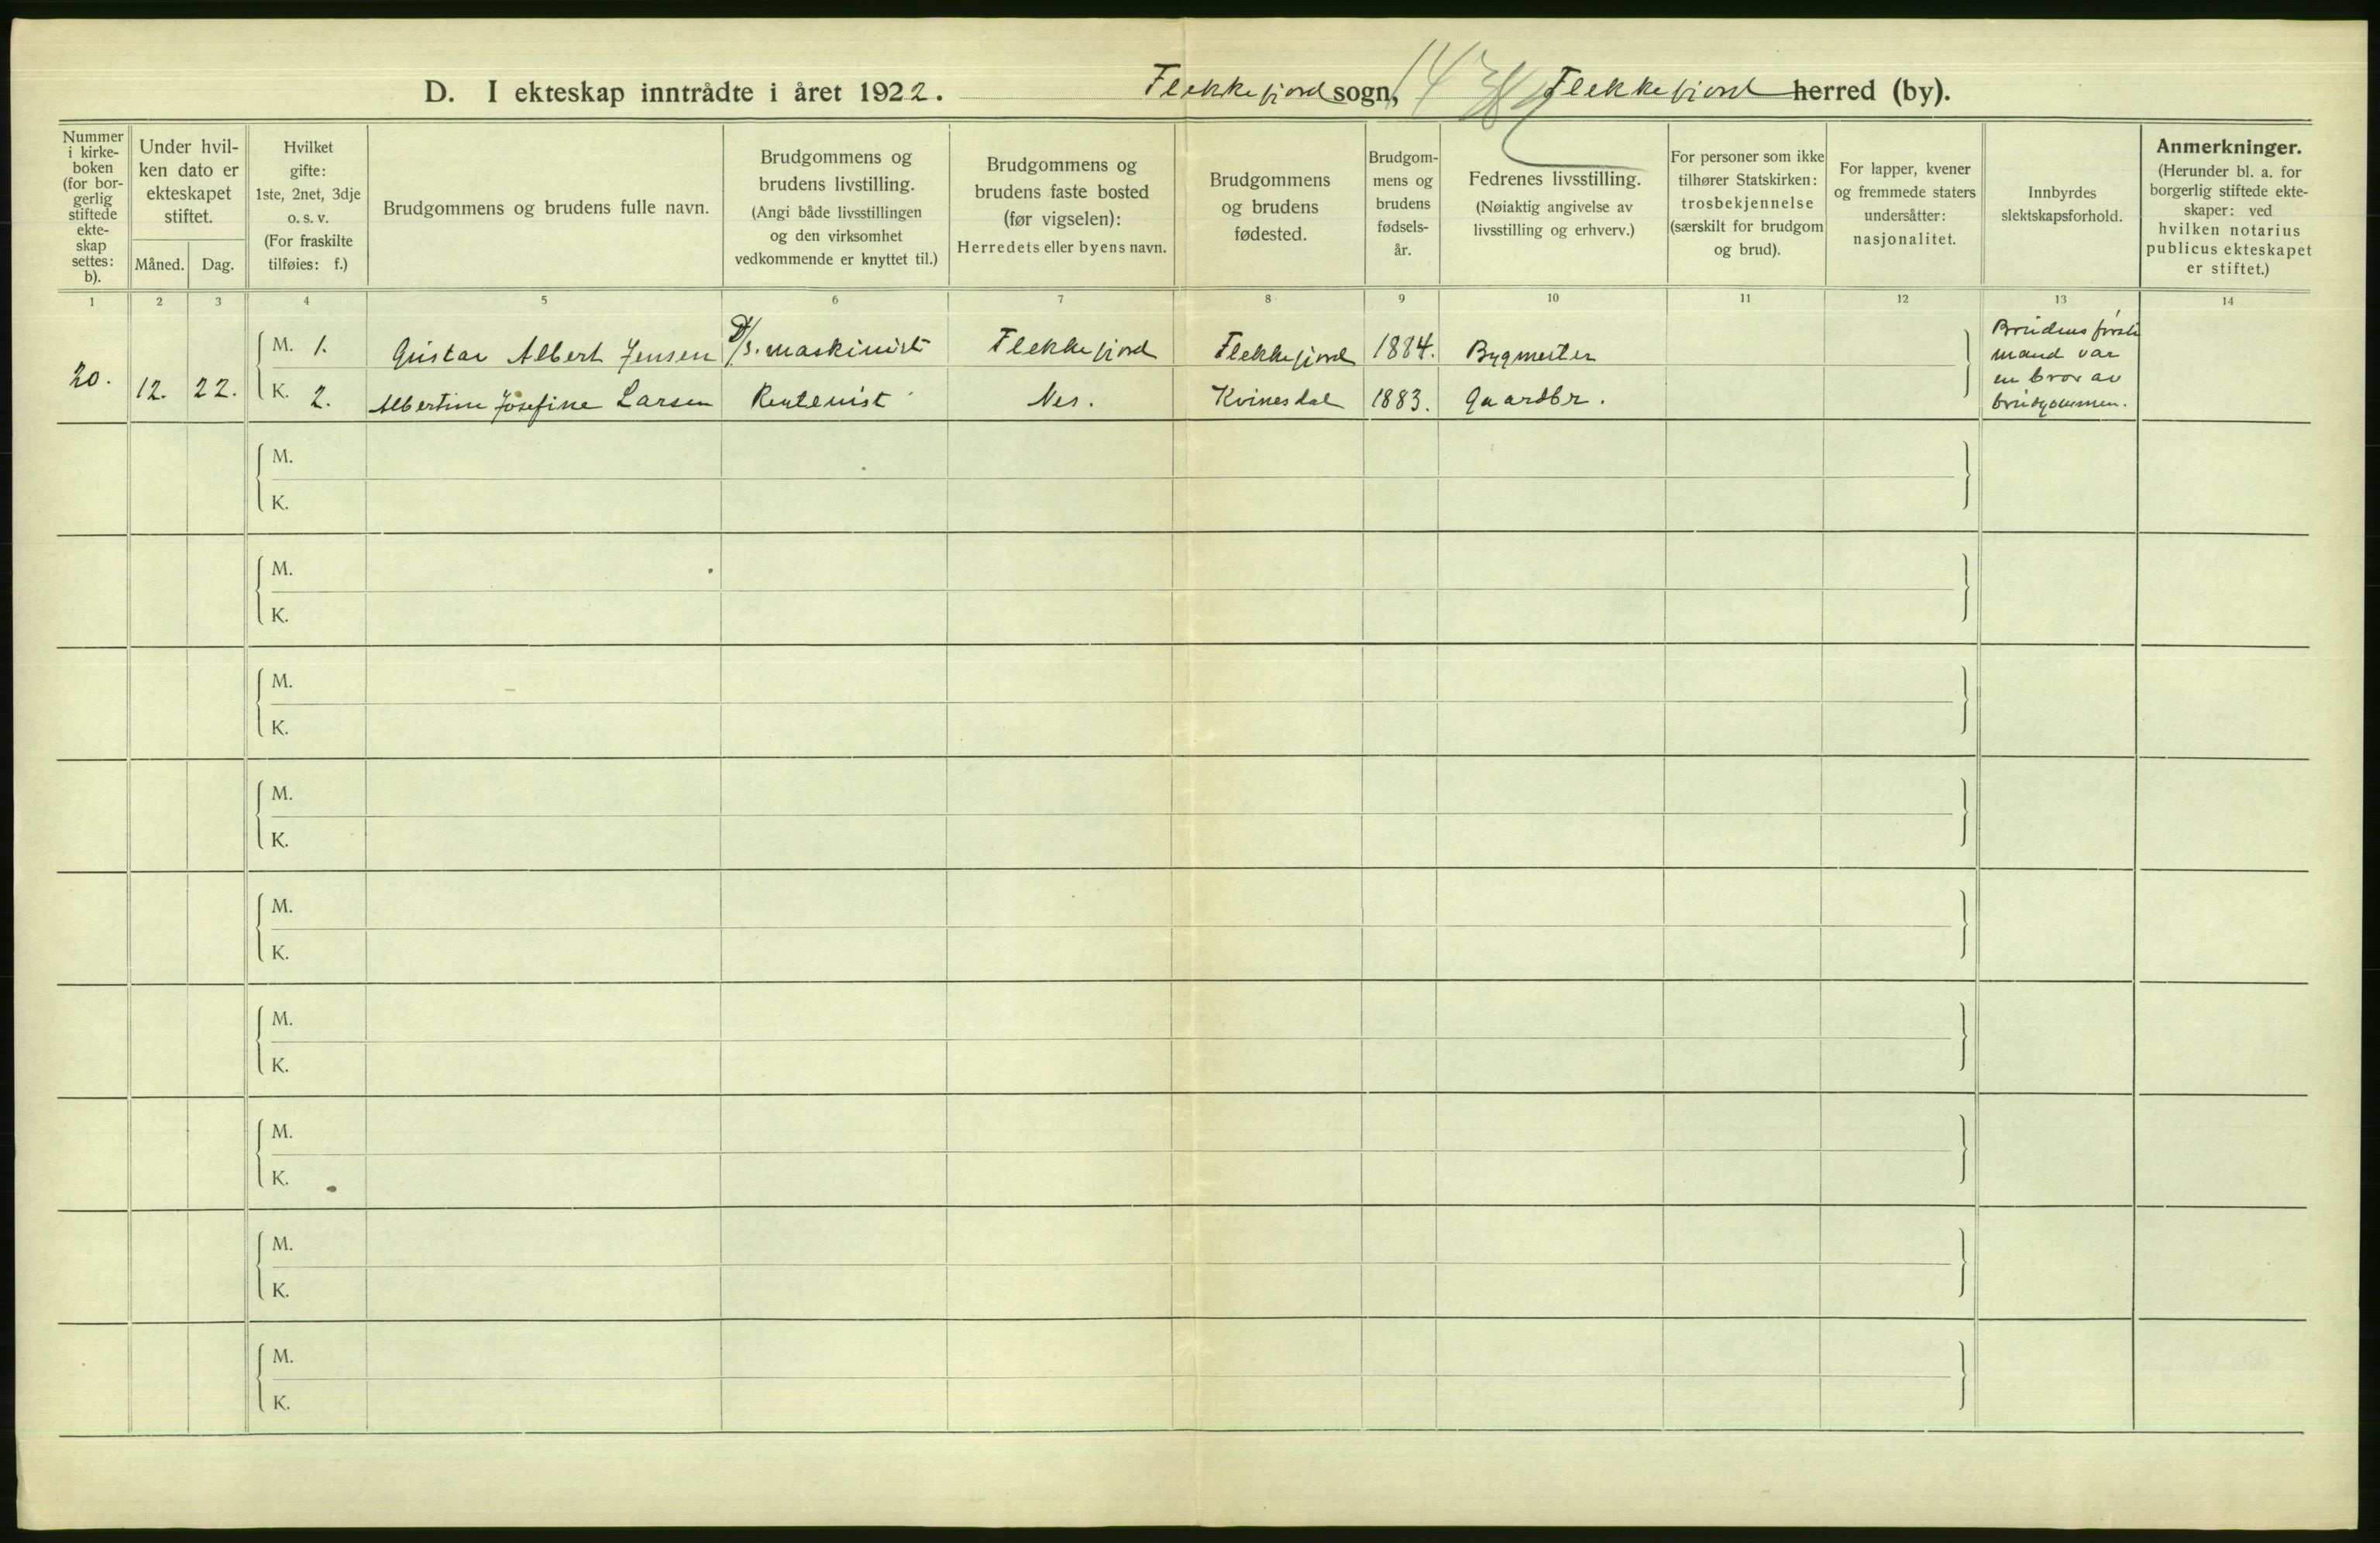 D. I ekteskap inntrådte i året 1922. Flekkefjord sogn, Flekkefjord herred (by).
Nummer i kirke- boken (for bor- gerlig stiftede ekte- skap settes: b).
Under hvil- ken dato er ekteskapet stiftet.
Måned. Dag.
Hvilket gifte: 1ste, 2net, 3dje o. s. v. (For fraskilte tilføies: f.)
Brudgommens og brudens fulle navn.
Brudgommens og brudens livstilling. (Angi både livsstillingen og den virksomhet vedkommende er knyttet til.)
Brudgommens og brudens faste bosted (før vigselen): Herredets eller byens navn.
Brudgommens og brudens fødested.
Brudgom- mens og brudens fødsels- år.
Fedrenes livsstilling. (Nøiaktig angivelse av livsstilling og erhverv.)
For personer som ikke tilhører Statskirken: trosbekjennelse (særskilt for brudgom og brud).
For lapper, kvener og fremmede staters undersåtter: nasjonalitet.
Innbyrdes slektskapsforhold.
Anmerkninger. (Herunder bl. a. for borgerlig stiftede ekte- skaper: ved hvilken notarius publicus ekteskapet er stiftet.)
1 2 3 4 5 6 7 8 9 10 11 12 13 14
20. 12. 22.
M. 1. Gustav Albert Jensen D/s. maskinist Flekkefjord Flekkefjord 1884. Bygmester
K. 2. Albertine Josefine Larsen Rentenist Nes. Kvinesdal 1883. Gaardbr.
Brudens første
mand var
en bror av
brudgommen.
M.
K.
M.
K.
M.
K.
M.
K.
M.
K.
M.
K.
M.
K.
M.
K.
M.
K.